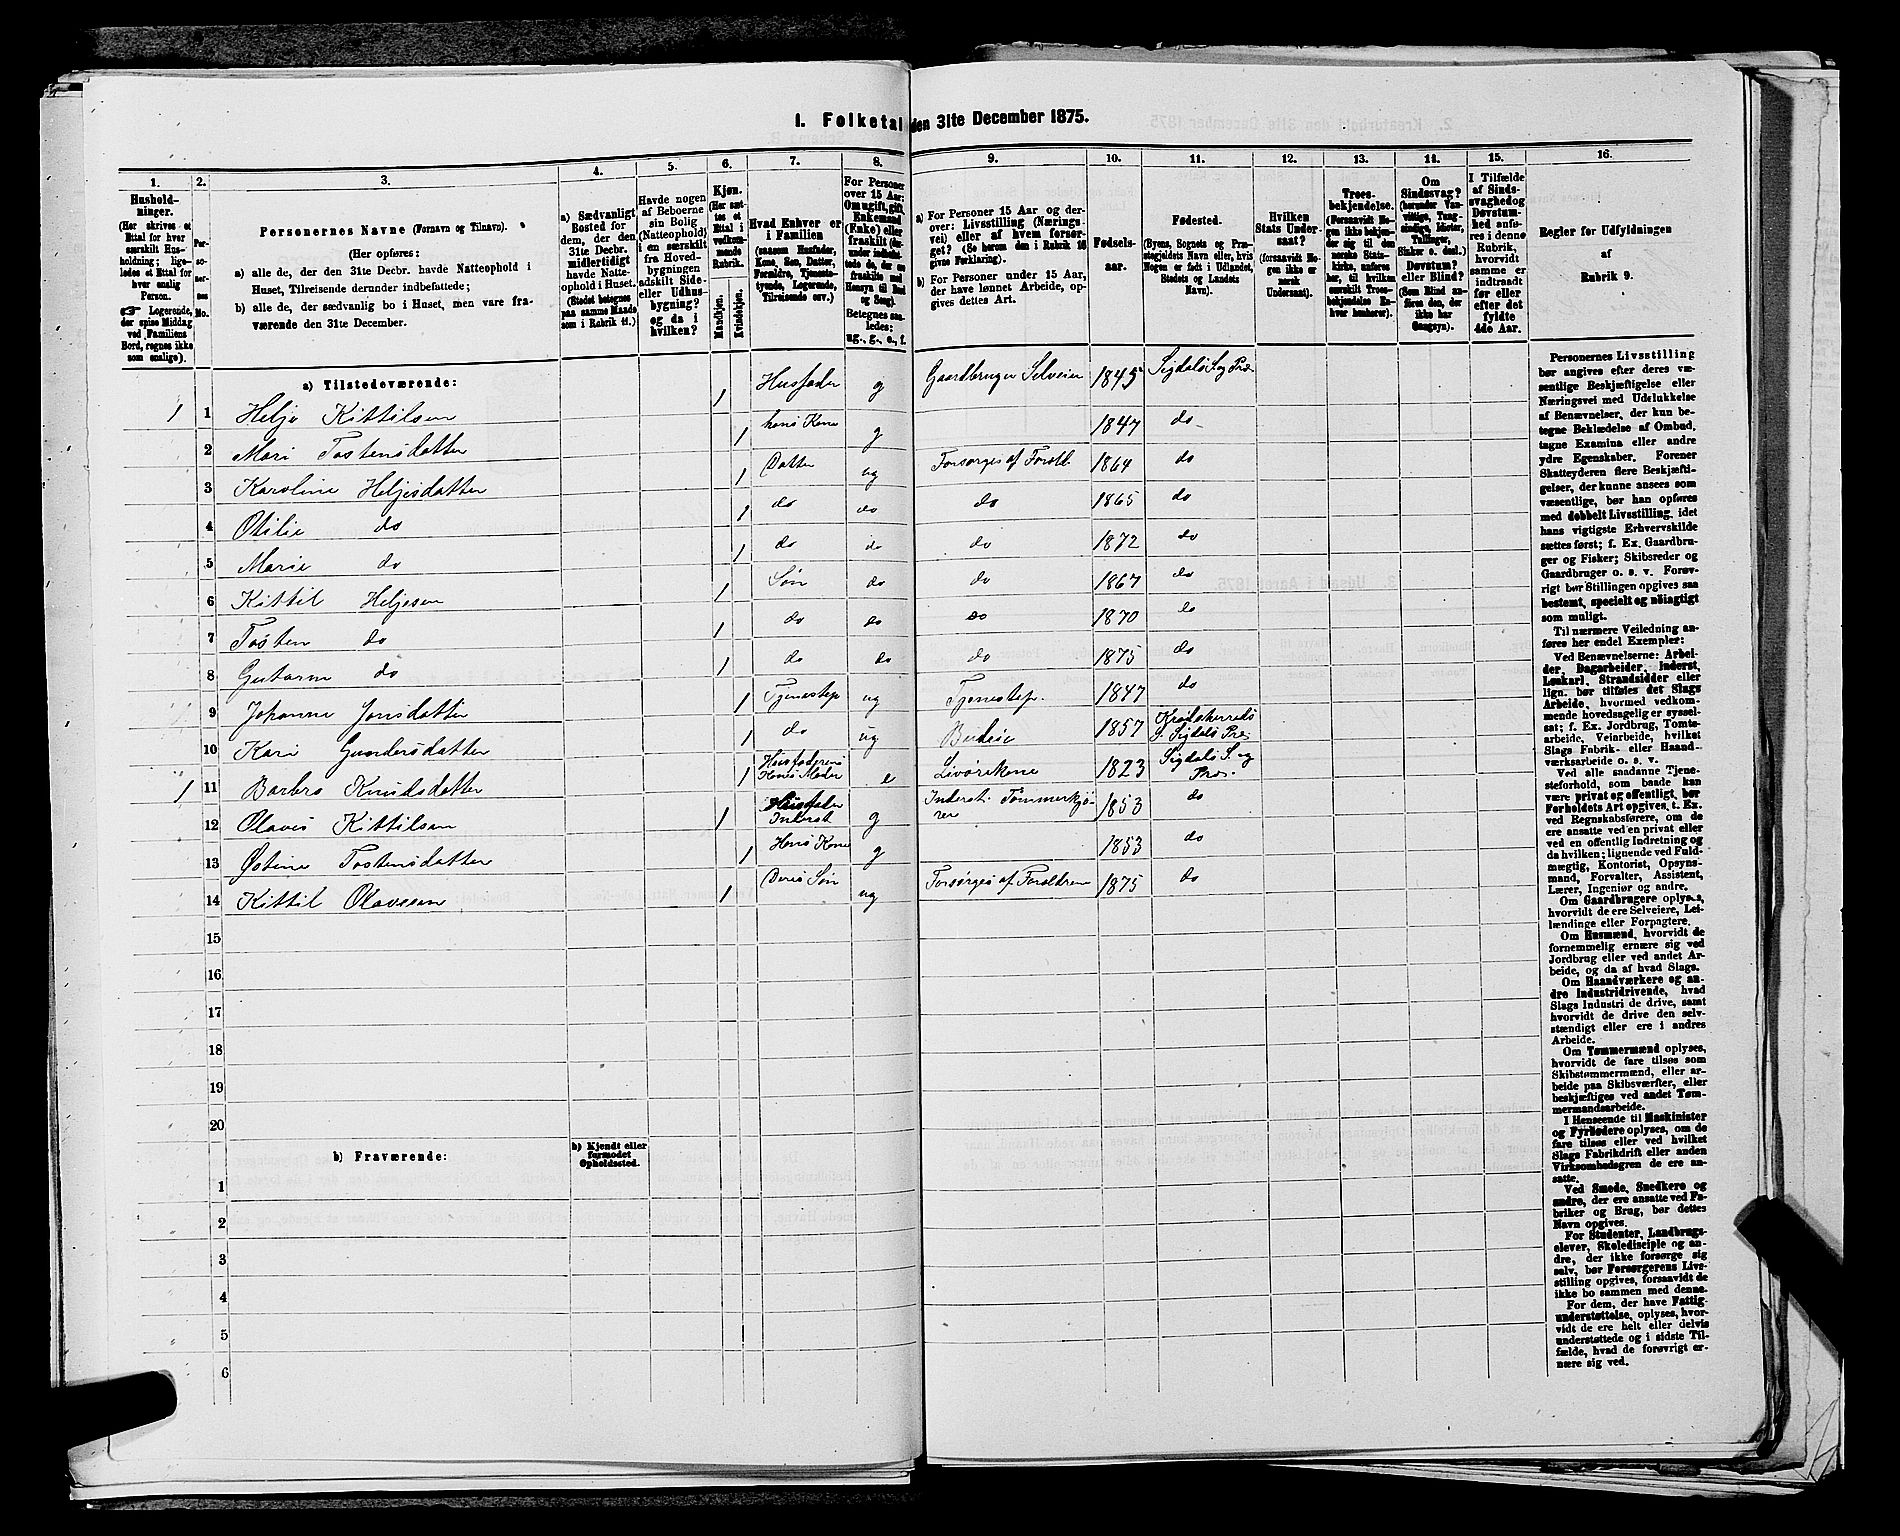 1. Folketal den 31te December 1875.
1. 2. 3. 4. 5. 6. 7. 8. 9. 10. 11. 12. 13. 14. 15. 16.
Hushold-
ninger.
(Her skrives et
Ettal for hver
særskilt Hus-
holdning; lige-
ledes et Ettal for
hver enslig
Person.
☞ Logerende,
der spise Middag
ved Familiens
Bord, regnes ikke
som enslige).
Per-
so-
ner-
nes
No.
Personernes Navne (Fornavn og Tilnavn).
(Her opføres:
a) alle de, der den 31te Decbr. havde Natteophold i
Huset, Tilreisende derunder indbefattede;
b) alle de, der sædvanlig bo i Huset, men vare fra-
værende den 31te December.
a) Sædvanligt
Bosted for
dem, der den
31te Decbr.
midlertidigt
havde Natte-
ophold i Huset.
(Stedet betegnes
paa samme Maade
som i Rubrik 11.)
Havde nogen
af Beboerne
sin Bolig
(Natteophold)
i en særskilt
fra Hoved-
bygningen
adskilt Side-
eller Udhus-
bygning?
og da i
hvilken?
Kjøn.
(Her sæt-
tes et
Ettal i
vedkom-
mende
Rubrik.
Mandkjøn.
Kvindekjøn.
Hvad Enhver er
i Familien
(saasom Husfader,
Kone, Søn, Datter,
Forældre, Tjeneste-
tyende, Logerende,
Tilreisende osv.)
For Personer
over 15 Aar:
Om ugift, gift,
Enkemand
(Enke) eller
fraskilt (der-
under indbefat-
tede de, der ere
fraskilte med
Hensyn til Bord
og Seng).
Betegnes saa-
ledes:
ug., g., e., f.
a) For Personer 15 Aar og der-
over: Livsstilling (Nærings-
vei) eller af hvem forsør-
get? (Se herom den i Rubrik 16
givne Forklaring).
b) For Personer under 15 Aar,
der have lønnet Arbeide, op-
gives dettes Art.
Fødsels-
aar.
Fødested.
(Byens, Sognets og Præ-
stegjeldets Navn eller, hvis
Nogen er født i Udlandet,
Stedets og Landets
Navn).
Hvilken
Stats Under-
saat?
(forsaavidt No-
gen ikke er
norsk
Undersaat).
Troes-
bekjendelse.
(Forsaavidt No-
gen ikke bekjen-
der sig til den
norske Stats-
kirke, anføres
her, til hvilken
særskilt Troes-
bekjendelse En-
hver henhører).
Om
Sindssvag?
(herunder Van-
vittige, Tung-
sindige, Idioter,
Tullinger,
Sinker o. desl.)
Døvstum?
eller Blind?
(Som Blind an-
føres den, der
ikke har
Gangsyn).
I Tilfælde
af Sinds-
svaghed og
Døvstum-
hed anfø-
res i denne
Rubrik,
hvorvidt
samme er
indtraadt
før eller
efter det
fyldte
4de Aar.
Regler for Udfyldningen
af
Rubrik 9.
a) Tilstedeværende:
1 1 Helje Kittilsen 1 Husfader g Gaardbruger Selveier 1845 Sigdals S. og Pre
2 Mari Tostensdatter 1 hans Kone g 1847 do
3 Karoline Heljesdatter 1 Datter ug Forsørges af Foreld. 1864 do
4 Otilie do 1 do do do 1865 do
5 Marie do 1 do do do 1872 do
6 Kittil Heljesen 1 Søn do do 1867 do
7 Tosten do 1 do do do 1870 do
8 Gustavin do 1 do do do 1875 do
9 Johanne Jonsdatter 1 Tjenestep ug Tjenestep. 1847 do
10 Kari Gundersdatter 1 do ug Budeie 1857 Krødsherreds
S. Sigdals Pre.
1 11 Barbro Knudsdatter 1 Husfaderens
Kones Moder e Livørekone 1823 Sigdals S. og
Pre.
12 Olaves Kittilsen 1 Husfader
Inderst g Inderst. Tømmerkjø-
rer 1853 do
13 Østine Tostensdatter 1 Hans Kone g 1853 do
14 Kittil Olavssen 1 Deres Søn ug Forsørges af Forældrene 1875 do
15
16
17
18
19
20
b) Fraværende:
b) Kjendt eller
formodet
Opholdssted.
1
2
3
4
5
6
Personernes Livsstilling
bør angives efter deres væ-
sentlige Beskjæftigelse eller
Næringsvei med Udelukkelse
af Benævnelser, der kun be-
tegne Beklædelse af Ombud,
tagne Examina eller andre
ydre Egenskaber. Forener
Skatteyderen flere Beskjæfti-
gelser, der kunne ansees som
væsentlige, bør han opføres
med dobbelt Livsstilling, idet
hans vigtigste Erhvervskilde
sættes først; f. Ex. Gaardbru-
ger og Fisker; Skibsreder og
Gaardbruger o. s. v. Forøv-
rigt bør Stillingen opgives saa
bestemt, specielt og nøiagtigt
som muligt.
Til nærmere Veiledning an-
føres her endel Exempler:
Ved Benævnelserne: Arbei-
der, Dagarbeider, Inderst,
Løskarl, Strandsidder eller
lign. bør tilføies det Slags
Arbeide, hvormed vedkom-
mende hovedsagelig er syssel-
sat; f. Ex. Jordbrug, Tomte-
arbeide, Veiarbeide, hvilket
Slags Fabrik- eller Haand-
værksarbeide o. s. v.
Ved alle saadanne Tjene-
steforhold, som baade kan
være privat og offentligt, bør
Forholdets Art opgives, t. Ex.
ved Regnskabsførere, om de
ere ansatte ved en privat eller
ved en offentlig Indretning og
da hvilken; lignende ved Fuld-
mægtig, Kontorist, Opsyns-
mand, Forvalter, Assistent,
Lærer, Ingeniør og andre.
Om Gaardbrugere oplyses,
hvorvidt de ere Selveiere, Lei-
lændinge eller Forpagtere.
Om Husmænd, hvorvidt de
fornemmelig ernære sig ved
Jordbrug eller ved andet Ar-
beide, og da af hvad Slags.
Om Haandværkere og an-
dre Industridrivende, hvad
Slags Industri de drive, samt
hvorvidt de drive den selv-
stændigt eller ere i andres
Arbeide.
Om Tømmermænd oplyses,
hvorvidt de fare tilsøs som
Skibstømmermænd, eller ar-
beide paa Skibsværfter, eller
beskjæftiges ved andet Tøm-
mermandsarbeide.
I Henseende til Maskinister
og Fyrbødere oplyses, om de
fare tilsøs eller ved hvilket
Slags Fabrikdrift eller anden
Virksomhedsgren de ere an-
satte.
Ved Smede, Snedkere og
andre, der ere ansatte ved Fa-
briker og Brug, bør dettes
Navn opgives.
For Studenter, Landbrugs-
elever, Skoledisciple og an-
dre, der ikke forsørge sig
selv, bør Forsørgerens Livs-
stilling opgives, forsaavidt de
ikke bo sammen med denne.
For dem, der have Fattig-
understøttelse, oplyses, hvor-
vidt de ere helt eller delvis
understøttede og i sidste Til-
fælde, hvad de forøvrigt er-
nære sig ved.